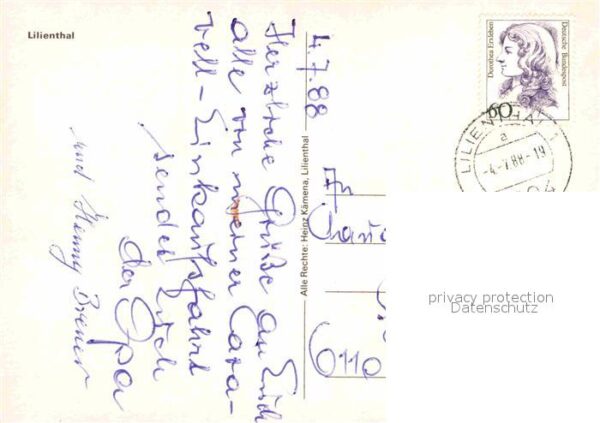 Lilienthal
4.7.88
Herzliche Grüße an Euch
alle von meiner Cara-
vell-Einkaufsfahrt
sendet Euch
der Opa
und Henny
Alle Rechte: Heinz Kämena, Lilienthal
An
6110
Dorothea Erxleben
Deutsche Bundespost
60
LILIENTHAL
a
-4.-7.88-19
privacy protection
Datenschutz